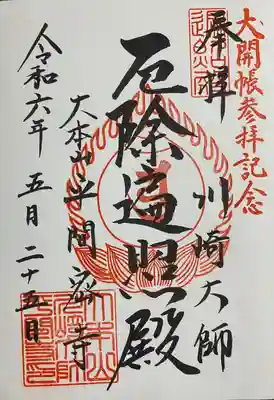 大開帳参拝記念
奉拝
川崎大師
厄除遍照殿
大本山平間寺
令和六年 五月二十五日